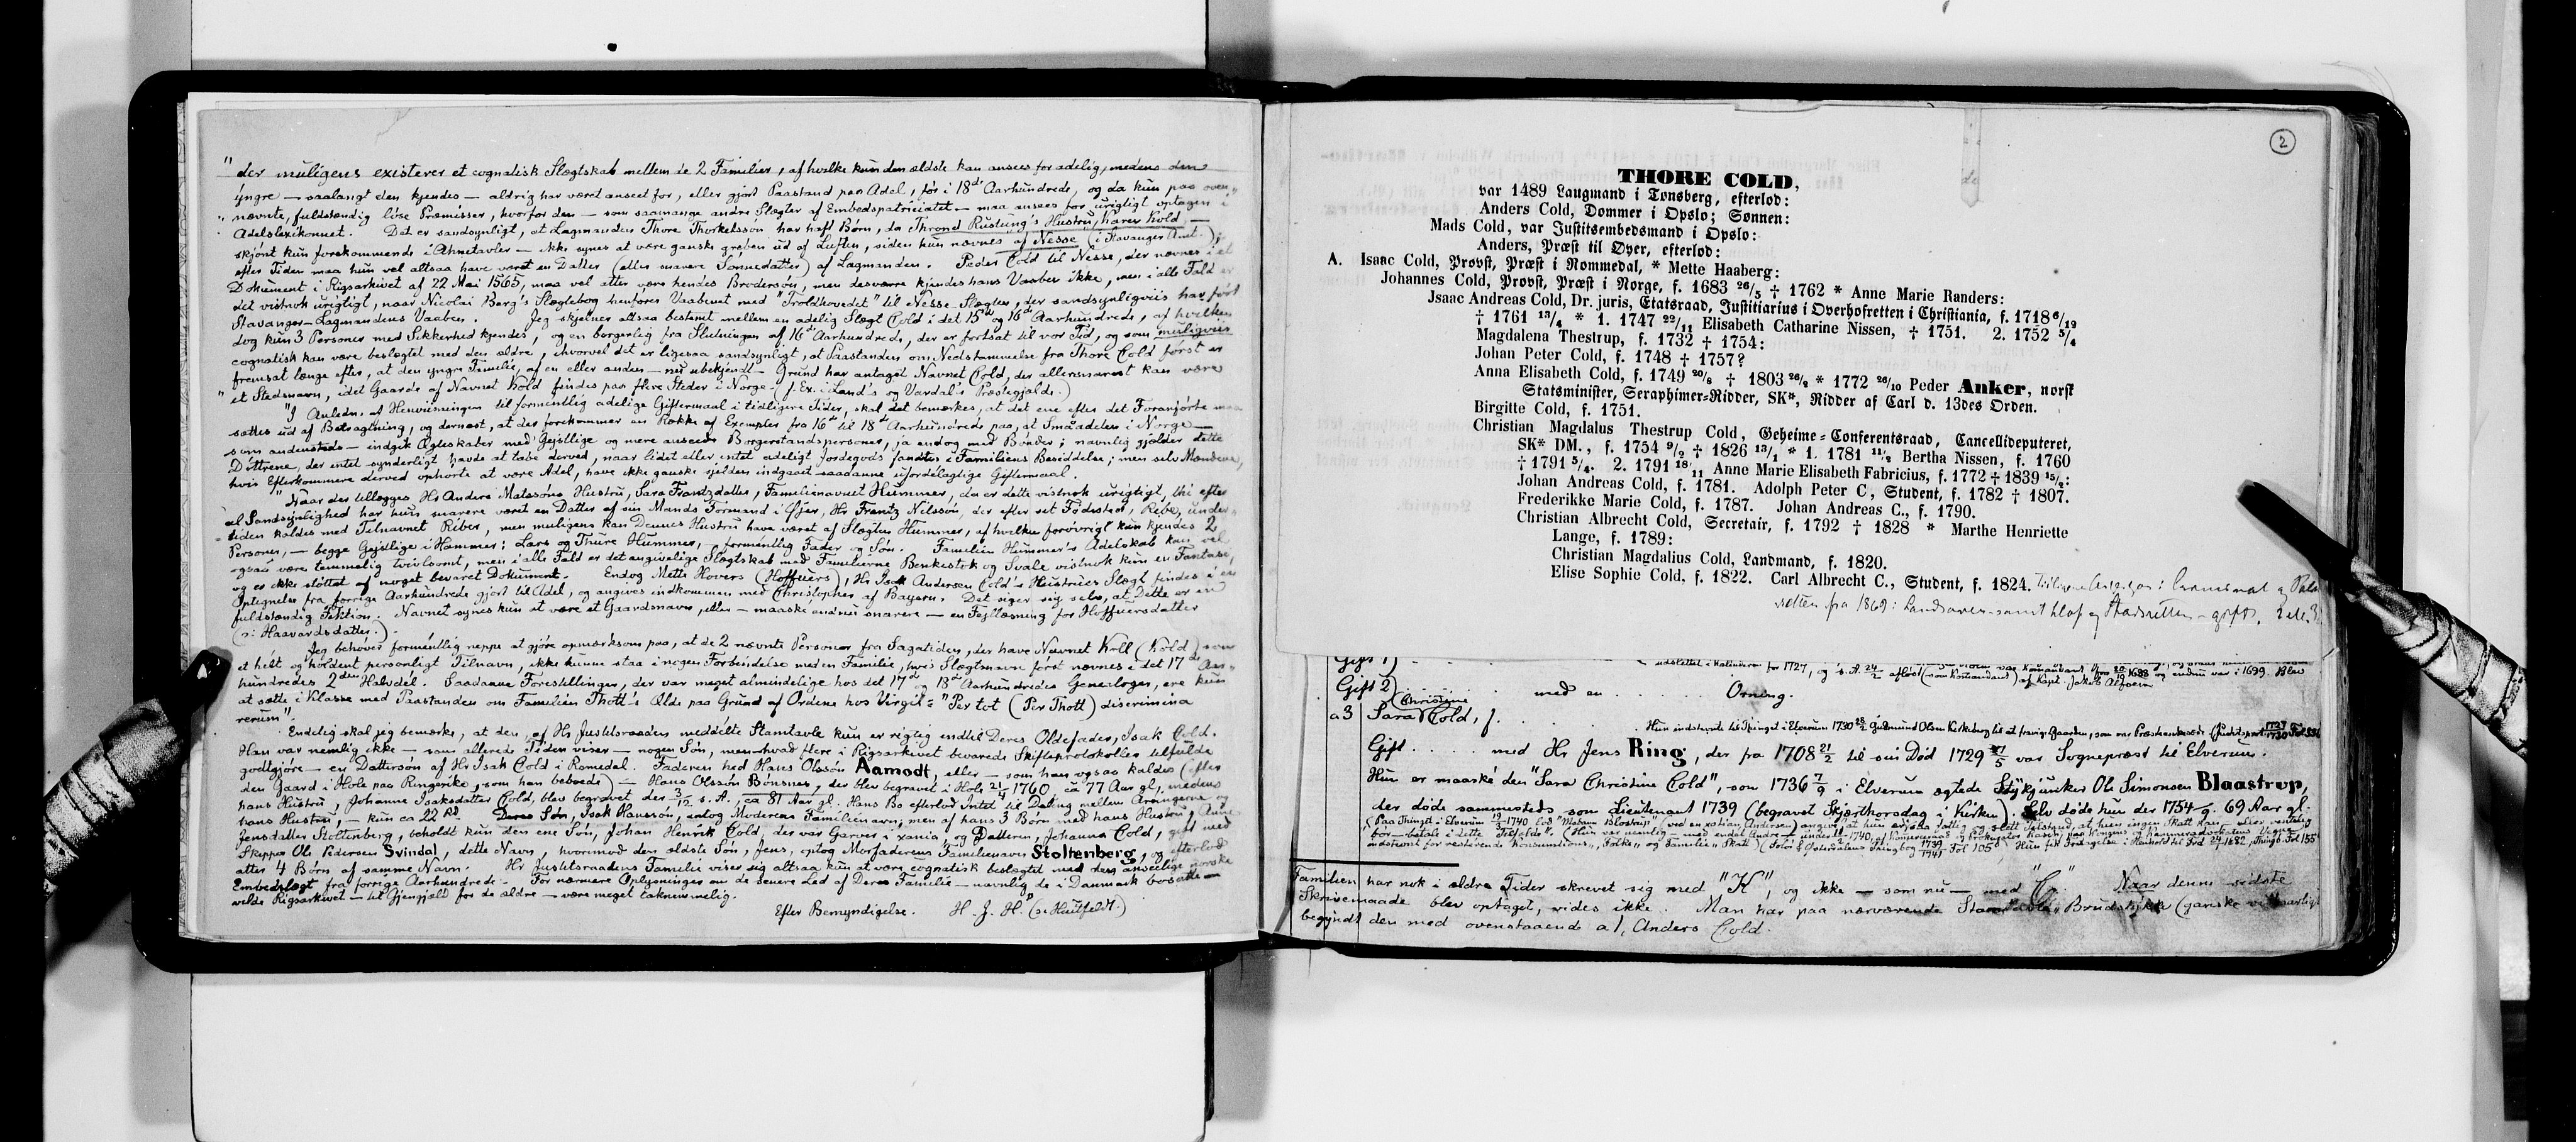 "der muligens existerer et cognatisk Slægtskab mellem de 2 Familier, af hvilke kun den ældste kan ansees for adelig, medens den
yngre — saalangt den kjendes — aldrig har været anseet for, eller gjort Paastand paa Adel, før i 18de Aarhundrede, og da kun paa oven-
nævnte, fuldstændig løse Præmisser, hvorfor den — som saamange andre Slægter af Embedspatriciatet — maa ansees for urigtigt optagen i
Adelslexikonnet. Det er sandsynligt, at Lagmanden Thore Thorkelssøn har haft Børn, da Thrond Rustung's Hustru, Karen Kold, —
skjønt kun forekommende i Ahnetavler — ikke synes at være ganske greben ud af Luften, siden hun nævnes af Nesse (i Stavanger Amt.);
efter Tiden maa hun vel altsaa have været en Datter (eller snarere Sønnedatter) af Lagmanden. Peder Cold til Nesse, der nævnes i et
Dokument i Rigsarkivet af 22 Mai 1565, maa vel atter være hendes Brodersøn, men desværre kjendes hans Vaaben ikke, men i alle Fald er
det vistnok urigtigt, naar Nicolai Berg's Slægtebog henfører Vaabenet med "Troldhovedet" til Nesse-Slægten, der sandsynligviis har ført
Stavanger-Lagmandens Vaaben. Jeg skjelner altsaa bestemt mellem en adelig Slægt Cold i det 15de og 16de Aarhundrede, af hvilken
dog kun 3 Personer med Sikkerhed kjendes, og en borgerlig fra Slutningen af 16de Aarhundrede, der er fortsat til vor Tid, og som muligviis
cognatisk kan være beslægtet med den ældre, ihvorvel det er ligesaa sandsynligt, at Paastanden om Nedstammelse fra Thore Cold først er
fremsat længe efter, at den yngre Familie, af en eller anden — nu ubekjendt — Grund har antaget Navnet Cold, der allersnarest kan være
et Stedsnavn, idet Gaarde af Navnet Kold findes paa flere Steder i Norge. (f. Ex. i Land's og Vardal's Præstegjælde.)
"I Anledn. af Henviisningen til formentlig adelige Giftermaal i tidligere Tider, skal det bemærkes, at det ene efter det Foranførte maa
sættes ud af Betragtning, og dernæst, at der forekommer en Række af Exempler fra 16de til 18de Aarhundrede paa, at Smaaadelen i Norge —
som andensteds — indgik Ægteskaber med Gejstlige og mere ansede Borgerstandspersoner, ja endog med Bønder; navnlig gjælder dette
Døttrene, der intet synderligt havde at tabe derved, naar lidet eller intet adeligt Jordegods fandtes i Familiens Besiddelse; men selv Mændene,
hvis Efterkommere derved ophørte at være Adel, have ikke ganske sjelden indgaaet saadanne ufordelagtige Giftermaal.
"Naar der tillægges Hr Anders Matssøns Hustru, Sara Frantzdatter, Familienavnet Hummer, da er dette vistnok urigtigt, thi efter
al Sandsynlighed har hun snarere været en Datter af sin Mands Formand i Øjer, Hr Frantz Nilssøn, der efter sit Fødested, Ribe, under-
tiden kaldes med Tilnavnet Riber, men muligens kan Dennes Hustru have været af Slægten Hummer, af hvilken forøvrigt kun kjendes 2
Personer, — begge Gejstlige i Hammer: Lars og Thure Hummer, — formentlig Fader og Søn. Familien Hummer's Adelskab kan vel
ogsaa være temmelig tvivlsomt, men i alle Fald er det angivelige Slægtskab med Familierne Benkestok og Svale vistnok kun en Fantasi,
og er ikke støttet af noget bevaret Dokument. Endog Mette Hovers (Hoffuers), Hr Isak Andersen Cold's Hustrues Slægt findes i en
Optegnelse fra forrige Aarhundrede gjort til Adel, og angives indkommen med Christopher af Bayern. Det siger sig selv, at Dette er en
fuldstændig Fiktion. Navnet synes kun at være et Gaardsnavn, eller — maaske endnu snarere — en Fejllæsning for Hoffuersdatter
(ɔ: Haavardsdatter.)
Jeg behøver formentlig neppe at gjøre opmærksom paa, at de 2 nævnte Personer fra Sagatiden, der have Navnet Koll (Kold) som
et helt og holdent personligt Tilnavn, ikke kunne staa i nogen Forbindelse med en Familie, hvis Slægtsnavn først nævnes i det 17de Aar-
hundredes 2den Halvdel. Saadanne Forestillinger, der var meget almindelige hos det 17de og 18de Aarhundredes Genealoger, ere kun
at sætte i Klasse med Paastanden om Familien Thott's Ælde paa Grund af Ordene hos Virgil: "Per tot (Per Thott) discrimina
rerum".
Endelig skal jeg bemærke, at den af Hr Justitsraaden meddelte Stamtavle kun er rigtig indtil Deres Oldefader, Isak Cold.
Han var nemlig ikke — som allerede Tiden viser — nogen Søn, men — hvad flere i Rigsarkivet bevarede Skifteprotokoller tilfulde
godtgjøre — en Dattersøn af Hr Isak Cold i Romedal. Faderen hed Hans Olssøn Aamodt, eller — som han ogsaa kaldes (efter
den Gaard i Hole paa Ringerike, som han beboede) — Hans Olssøn Bønsnes, der blev begravet i Hole 21/4 1760 ca 77 Aar gl, medens
hans Hustru, Johanne Isaksdatter Cold, blev begravet der 3/12 s. A., ca 81 Aar gl. Hans Bo efterlod Intet til Deling mellem Arvingerne,
hans Hustru, — kun ca 22 Rd. Deres Søn, Isak Hanssøn, antog Moderens Familienavn; men af hans 3 Børn med hans Hustru, Anne
Jensdatter Stoltenberg, beholdt kun den ene Søn, Johan Henrik Cold, der var Garver i Xania, og Datteren, Johanna Cold, gift med
Skipper Ole Pedersen Svindal, dette Navn, hvorimod den ældste Søn, Jens, optog Morfaderens Familienavn Stoltenberg, og efterlod
atter 4 Børn af samme Navn. Hr Justitsraadens Familie viser sig altsaa kun at være cognatisk beslægtet med den anseelige norske
Embedsslægt fra forrige Aarhundrede. For nærmere Oplysninger om de senere Led af Deres Familie — navnlig de i Danmark bosatte —
vilde Rigsarkivet — til Gjengjæld for de ældre — være meget taknemmelig.
Efter Bemyndigelse. H. J. H. (ɔ: Huitfeldt.)
2
THORE COLD,
var 1489 Laugmand i Tønsberg, efterlod:
Anders Cold, Dommer i Opslo; Sønnen:
Mads Cold, var Justitsembedsmand i Opslo:
Anders, Præst til Øyer, efterlod:
A. Isaac Cold, Provst, Præst i Rommedal, * Mette Haaberg:
Johannes Cold, Provst, Præst i Norge, f. 1683 26/5 † 1762 * Anne Marie Randers:
Isaac Andreas Cold, Dr. juris, Etatsraad, Justitiarius i Overhofretten i Christiania, f. 1718 6/12
† 1761 13/4 * 1. 1747 22/11 Elisabeth Catharine Nissen, † 1751. 2. 1752 5/4
Magdalena Thestrup, f. 1732 † 1754:
Johan Peter Cold, f. 1748 † 1757?
Anna Elisabeth Cold, f. 1749 20/8 † 1803 26/2 * 1772 26/10 Peder Anker, norsk
Statsminister, Seraphimer-Ridder, SK*, Ridder af Carl d. 13des Orden.
Birgitte Cold, f. 1751.
Christian Magdalus Thestrup Cold, Geheime-Conferentsraad, Cancellideputeret,
SK* DM., f. 1754 9/2 † 1826 13/1 * 1. 1781 11/2 Bertha Nissen, f. 1760
† 1791 5/4. 2. 1791 18/11 Anne Marie Elisabeth Fabricius, f. 1772 † 1839 15/2:
Johan Andreas Cold, f. 1781. Adolph Peter C, Student, f. 1782 † 1807.
Frederikke Marie Cold, f. 1787. Johan Andreas C., f. 1790.
Christian Albrecht Cold, Secretair, f. 1792 † 1828 * Marthe Henriette
Lange, f. 1789:
Christian Magdalius Cold, Landmand, f. 1820.
Elise Sophie Cold, f. 1822. Carl Albrecht C., Student, f. 1824.
retten fra 1869: Landsover-samt Hof og Stadsretten - gift.
Gift 1)
udslettet i Kalinderen for 1727, og s. A. 24/2 afløst (som Komandant) af Kapt. Jakob
og endnu var i 1699. Blev
Gift 2 . . . med en . . . Orning.
a3 Sara (Christine) Cold, f. . . .
Hun indstevnte til Thinget i Elverum 1730 Gudmund Olsen
Gift . . . . med Hr Jens Ring, der fra 1708 21/2 til sin Død 1729 27/5 var Sogneprest til Elverum.
Hun er maaské den "Sara Christine Cold", som 1736 7/9 i Elverum ægtede Stykjunker Ole Simonsen Blaastrup,
der døde sammesteds som Lieutenant 1739 (begravet Skjærthorsdag i Kirken). Selv døde hun der 1754 g. 69 Aar gl.
(Paa Thinget i Elverum 1740 lod "Madam Blostrup" angive, at hun
Familien har nok i ældre Tider skrevet sig med "K", og ikke — som nu — med "C". Naar denne sidste
Skrivemaade blev optaget, vides ikke. Man har paa nærværende Stamtavle Brudstykke (ganske vilkaarligt
begyndt den med ovenstaaende a1, Anders Cold.